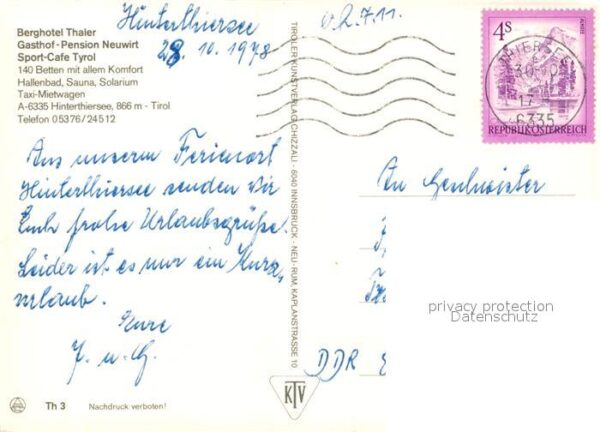 Berghotel Thaler
Gasthof-Pension Neuwirt
Sport-Cafe Tyrol
140 Betten mit allem Komfort
Hallenbad, Sauna, Solarium
Taxi-Mietwagen
A-6335 Hinterthiersee, 866 m - Tirol
Telefon 05376/24512
Hinterthiersee
28. 10. 1978
Aus unserm Ferienort
Hinterthiersee senden wir
Euch frohe Urlaubsgrüße.
Leider ist es nur ein Kurz,
urlaub.
Eure
J. u. G.
Th 3 Nachdruck verboten!
TIROLER KUNSTVERLAG CHIZZALI · 6040 INNSBRUCK - NEU-RUM, KAPLANSTRASSE 10
KTV
7.11.
4S
REPUBLIK ÖSTERREICH
THIERSEE
30.10
17
6335
An Geschwister
DDR
privacy protection
Datenschutz